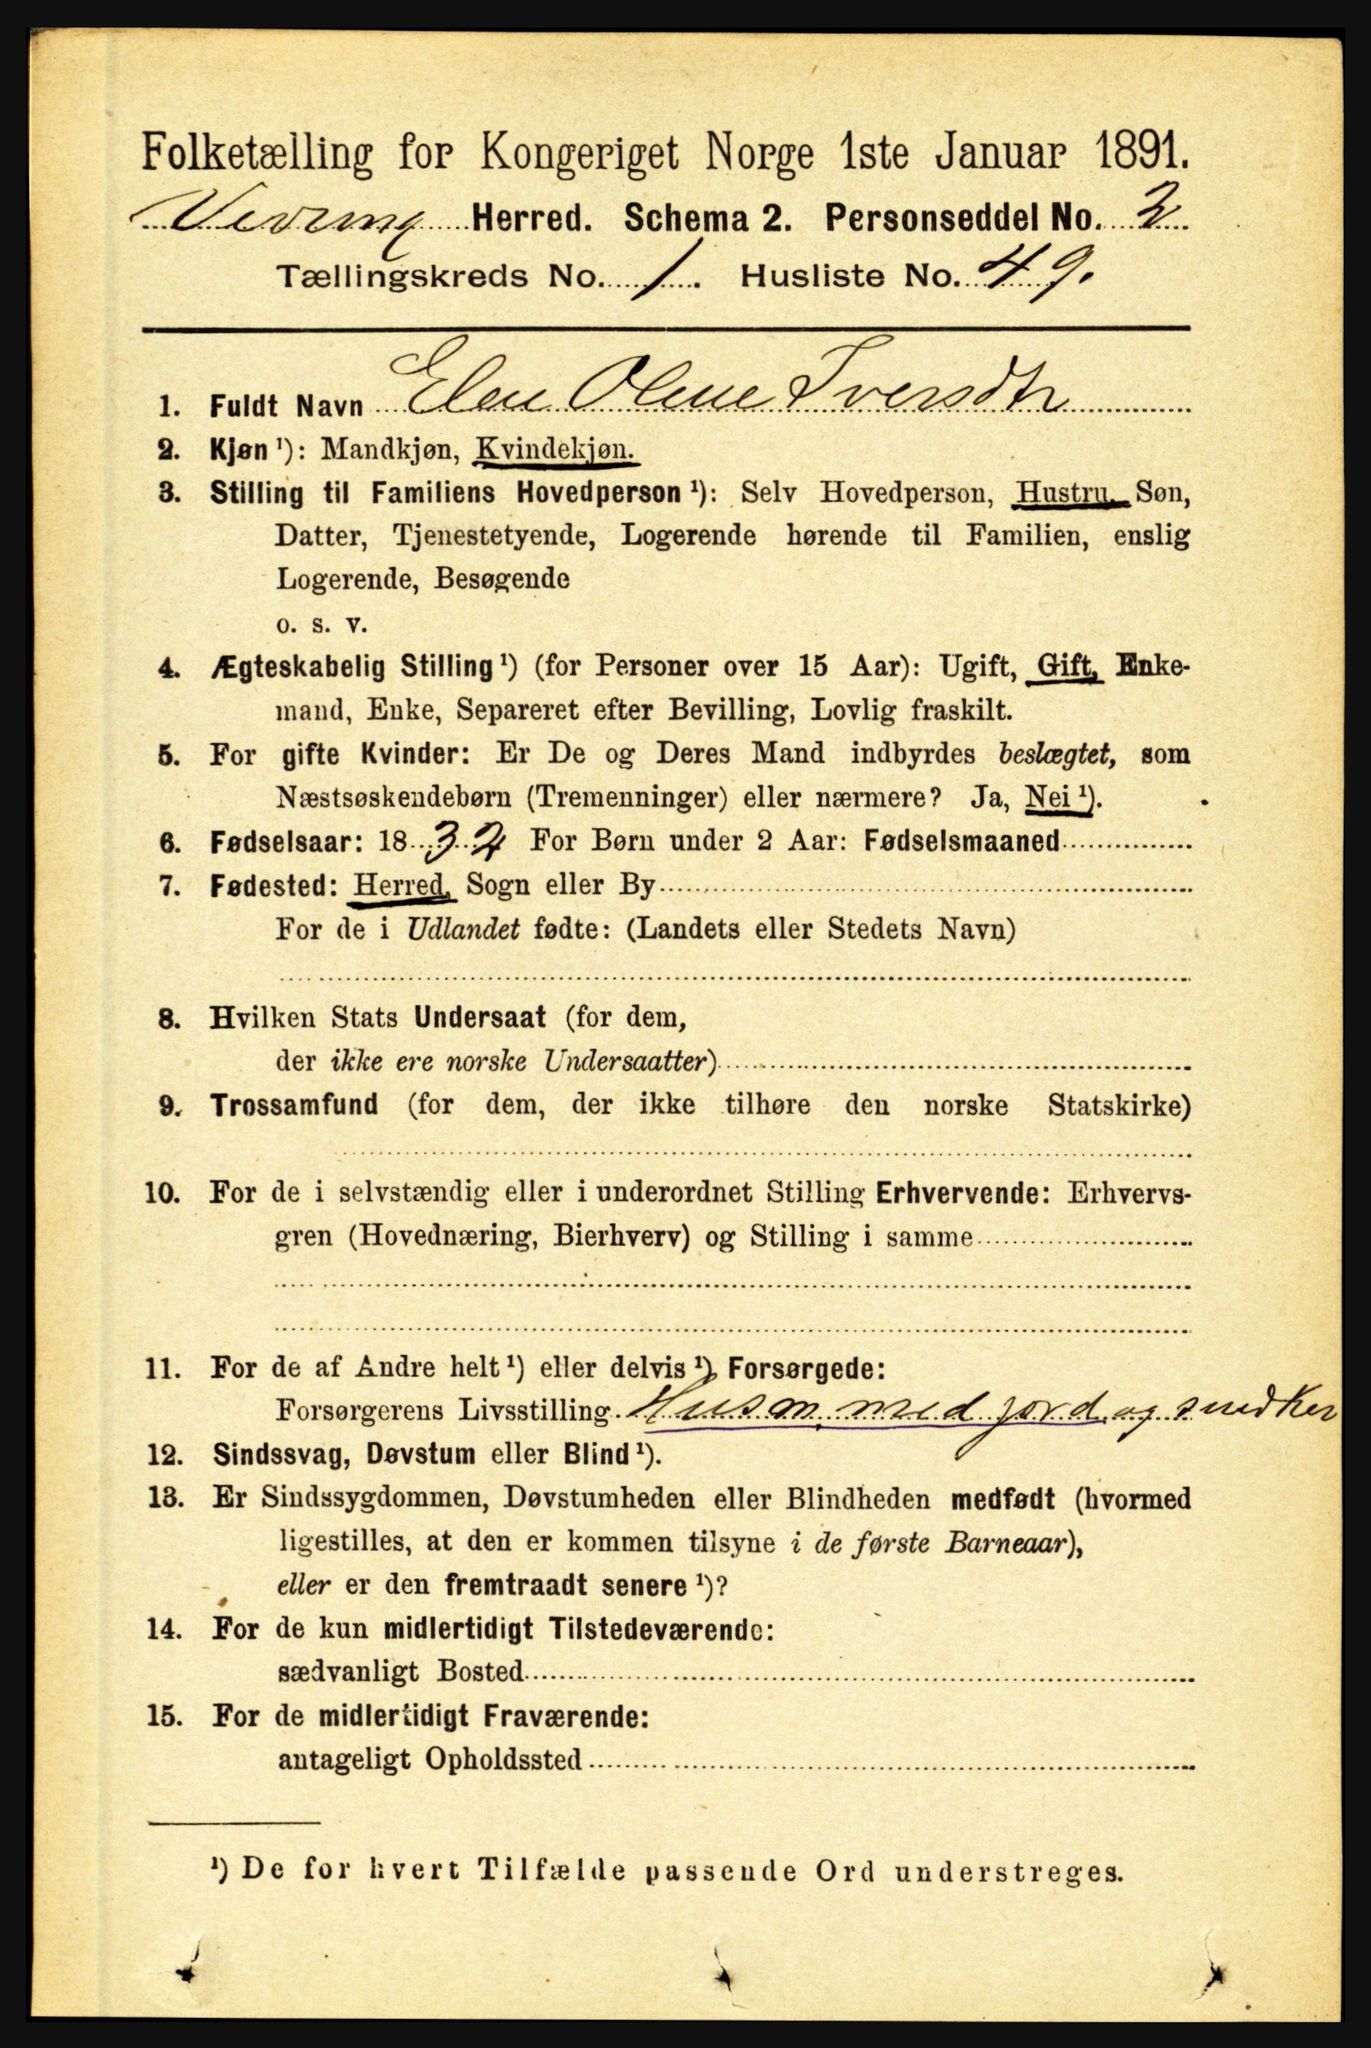 Folketælling for Kongeriget Norge 1ste Januar 1891.
Vevring Herred. Schema 2. Personseddel No. 2
Tællingskreds No. 1. Husliste No. 49.
1. Fuldt Navn Elen Oline Iversdtr
2. Kjøn ¹): Mandkjøn, Kvindekjøn.
3. Stilling til Familiens Hovedperson ¹): Selv Hovedperson, Hustru, Søn,
Datter, Tjenestetyende, Logerende hørende til Familien, enslig
Logerende, Besøgende
o. s. v.
4. Ægteskabelig Stilling ¹) (for Personer over 15 Aar): Ugift, Gift, Enke-
mand, Enke, Separeret efter Bevilling, Lovlig fraskilt.
5. For gifte Kvinder: Er De og Deres Mand indbyrdes beslægtet, som
Næstsøskendebørn (Tremenninger) eller nærmere? Ja, Nei ¹).
6. Fødselsaar: 1832 For Børn under 2 Aar: Fødselsmaaned
7. Fødested: Herred, Sogn eller By
For de i Udlandet fødte: (Landets eller Stedets Navn)
8. Hvilken Stats Undersaat (for dem,
der ikke ere norske Undersaatter)
9. Trossamfund (for dem, der ikke tilhøre den norske Statskirke)
10. For de i selvstændig eller i underordnet Stilling Erhvervende: Erhvervs-
gren (Hovednæring, Bierhverv) og Stilling i samme
11. For de af Andre helt ¹) eller delvis ¹) Forsørgede:
Forsørgerens Livsstilling Husm. med jord og snedker
12. Sindssvag, Døvstum eller Blind ¹).
13. Er Sindssygdommen, Døvstumheden eller Blindheden medfødt (hvormed
ligestilles, at den er kommen tilsyne i de første Barneaar),
eller er den fremtraadt senere ¹)?
14. For de kun midlertidigt Tilstedeværende:
sædvanligt Bosted
15. For de midlertidigt Fraværende:
antageligt Opholdssted
¹) De for hvert Tilfælde passende Ord understreges.